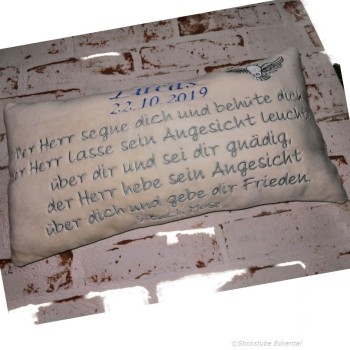 Lucas
22.10.2019
Der Herr segne dich und behüte dich
der Herr lasse sein Angesicht leuchten
über dir und sei dir gnädig,
der Herr hebe sein Angesicht
über dich und gebe dir Frieden.
©Stickstube Eckental